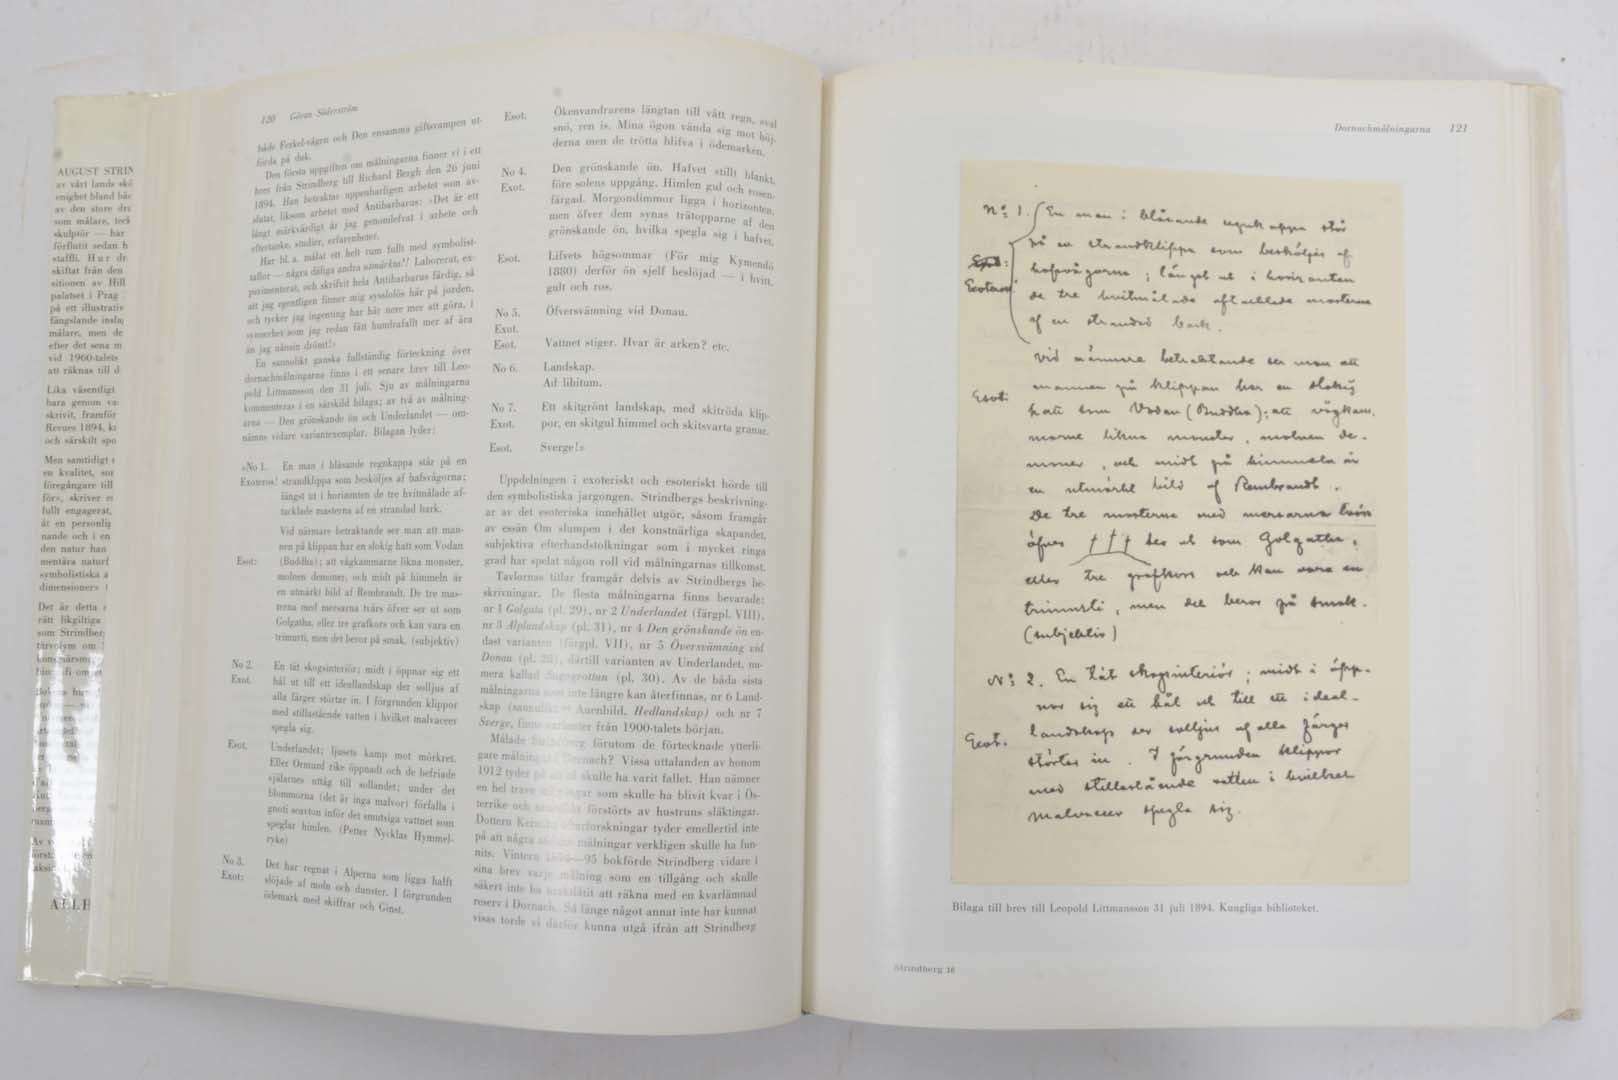 AUGUST STRIN
av vårt lands skö
enighet bland båc
av den store dra
som målare, teck
skulptör — har
förflutit sedan h
staffli. Hur dr
skiftat från den
sitionen av Hill
palatset i Prag
på ett illustrativ
fängslande inslag
målare, men de
efter det sena m
vid 1960-talets
att räknas till d
Lika väsentligt
bara genom va
skrivit, framför
Revues 1894, kr
och särskilt spo
Men samtidigt
en kvalitet, sor
föregångare till
för», skriver er
fullt engagerat,
åt en personlig
nande och i en
den natur han
mentära naturf
symbolistiska a
dimensioner»
Det är detta
rätt likgiltiga
som Strindber
120 Göran Söderström
både Ferkel-vägen och Den ensamma giftsvampen ut-
förda på duk.
Den första uppgiften om målningarna finner vi i ett
brev från Strindberg till Richard Bergh den 26 juni
1894. Han betraktar uppenbarligen arbetet som av-
slutat, liksom arbetet med Antibarbarus: »Det är ett
långt märkvärdigt år jag genomlefvat i arbete och
eftertanke, studier, erfarenheter.
Har bl. a. målat ett helt rum fullt med symbolist-
taflor — några dåliga andra utmärkta!! Laborerat, ex-
perimenterat, och skrifvit hela Antibarbarus färdig, så
att jag egentligen finner mig sysslolös här på jorden,
och tycker jag ingenting har här nere mer att göra, i
synnerhet som jag redan fått hundrafallt mer af ära
än jag nånsin drömt!»
En sannolikt ganska fullständig förteckning över
dornachmålningarna finns i ett senare brev till Leo-
pold Littmansson den 31 juli. Sju av målningarna
kommenteras i en särskild bilaga; av två av målning-
arna — Den grönskande ön och Underlandet — om-
nämns vidare variantexemplar. Bilagan lyder:
»No 1. En man i blåsande regnkappa står på en
Exoteros! strandklippa som besköljes af hafsvågorna;
längst ut i horizonten de tre hvitmålade af-
tacklade masterna af en strandad bark.
Vid närmare betraktande ser man att man-
nen på klippan har en slokig hatt som Vodan
Esot: (Buddha); att vågkammarne likna monster,
molnen demoner, och midt på himmeln är
en utmärkt bild af Rembrandt. De tre mas-
terna med mersarna tvärs öfver ser ut som
Golgatha, eller tre grafkors och kan vara en
trimurti, men det beror på smak. (subjektiv)
No 2. En tät skogsinteriör; midt i öppnar sig ett
Exot. hål ut till ett ideallandskap der solljus af
alla färger störtar in. I förgrunden klippor
med stillastående vatten i hvilket malvaceer
spegla sig.
Esot. Underlandet; ljusets kamp mot mörkret.
Eller Ormuzd rike öppnadt och de befriade
själarnes uttåg till sollandet; under det
blommorna (det är inga malvor) förfalla i
gnoti seavton inför det smutsiga vattnet som
speglar himlen. (Petter Nycklas Hymmel-
ryke)
No 3. Det har regnat i Alperna som ligga halft
Exot: slöjade af moln och dunster. I förgrunden
ödemark med skiffrar och Ginst.
Esot. Ökenvandrarens längtan till vått regn, sval
snö, ren is. Mina ögon vända sig mot höj-
derna men de trötta blifva i ödemarken.
No 4. Den grönskande ön. Hafvet stillt blankt,
Exot. före solens uppgång. Himlen gul och rosen-
färgad. Morgondimmor ligga i horizonten,
men öfver dem synas trätopparne af den
grönskande ön, hvilka spegla sig i hafvet.
Esot. Lifvets högsommar (För mig Kymendö
1880) derför ön sjelf beslöjad — i hvitt,
gult och ros.
No 5. Öfversvämning vid Donau.
Exot.
Esot. Vattnet stiger. Hvar är arken? etc.
No 6. Landskap.
Ad libitum.
No 7. Ett skitgrönt landskap, med skitröda klip-
Exot. por, en skitgul himmel och skitsvarta granar.
Esot. Sverge!»
Uppdelningen i exoteriskt och esoteriskt hörde till
den symbolistiska jargongen. Strindbergs beskrivning-
ar av det esoteriska innehållet utgör, såsom framgår
av essän Om slumpen i det konstnärliga skapandet,
subjektiva efterhandstolkningar som i mycket ringa
grad har spelat någon roll vid målningarnas tillkomst.
Tavlornas titlar framgår delvis av Strindbergs be-
skrivningar. De flesta målningarna finns bevarade:
nr 1 Golgata (pl. 29), nr 2 Underlandet (färgpl. VIII),
nr 3 Alplandskap (pl. 31), nr 4 Den grönskande ön en-
dast varianten (färgpl. VII), nr 5 Översvämning vid
Donau (pl. 28), därtill varianten av Underlandet, nu-
mera kallad Sagogrottan (pl. 30). Av de båda sista
målningarna som inte längre kan återfinnas, nr 6 Land-
skap (sannolikt = Auenbild, Hedlandskap) och nr 7
Sverge, finns varianter från 1900-talets början.
Målade Strindberg förutom de förtecknade ytterli-
gare målningar i Dornach? Vissa uttalanden av honom
1912 tyder på att så skulle ha varit fallet. Han nämner
en hel trave målningar som skulle ha blivit kvar i Ös-
terrike och förstörts av hustruns släktingar.
Dottern Kerstins efterforskningar tyder emellertid inte
på att några sådana målningar verkligen skulle ha fun-
nits. Vintern 1894—95 bokförde Strindberg vidare i
sina brev varje målning som en tillgång och skulle
säkert inte ha underlåtit att räkna med en kvarlämnad
reserv i Dornach. Så länge något annat inte har kunnat
visas torde vi därför kunna utgå ifrån att Strindberg
Dornachmålningarna 121
No 1. En man i blåsande regnkappa står
på en strandklippa som besköljes af
Exot:
Exoteros! hafsvågorna; längst ut i horizonten
de tre hvitmålade aftacklade masterna
af en strandad bark.
Vid närmare betraktande ser man att
Esot: mannen på klippan har en slokig
hatt som Vodan (Buddha); att vågkam-
marne likna monster, molnen de-
moner, och midt på himmeln är
en utmärkt bild af Rembrandt.
De tre masterna med mersarna tvärs
öfver ††† ser ut som Golgatha,
eller tre grafkors och kan vara en
trimurti, men det beror på smak.
(subjektiv)
No 2. En tät skogsinteriör; midt i öpp-
nar sig ett hål ut till ett ideal-
Exot. landskap der solljus af alla färger
störtar in. I förgrunden klippor
med stillastående vatten i hvilket
malvaceer spegla sig.
Bilaga till brev till Leopold Littmansson 31 juli 1894. Kungliga biblioteket.
Strindberg 16